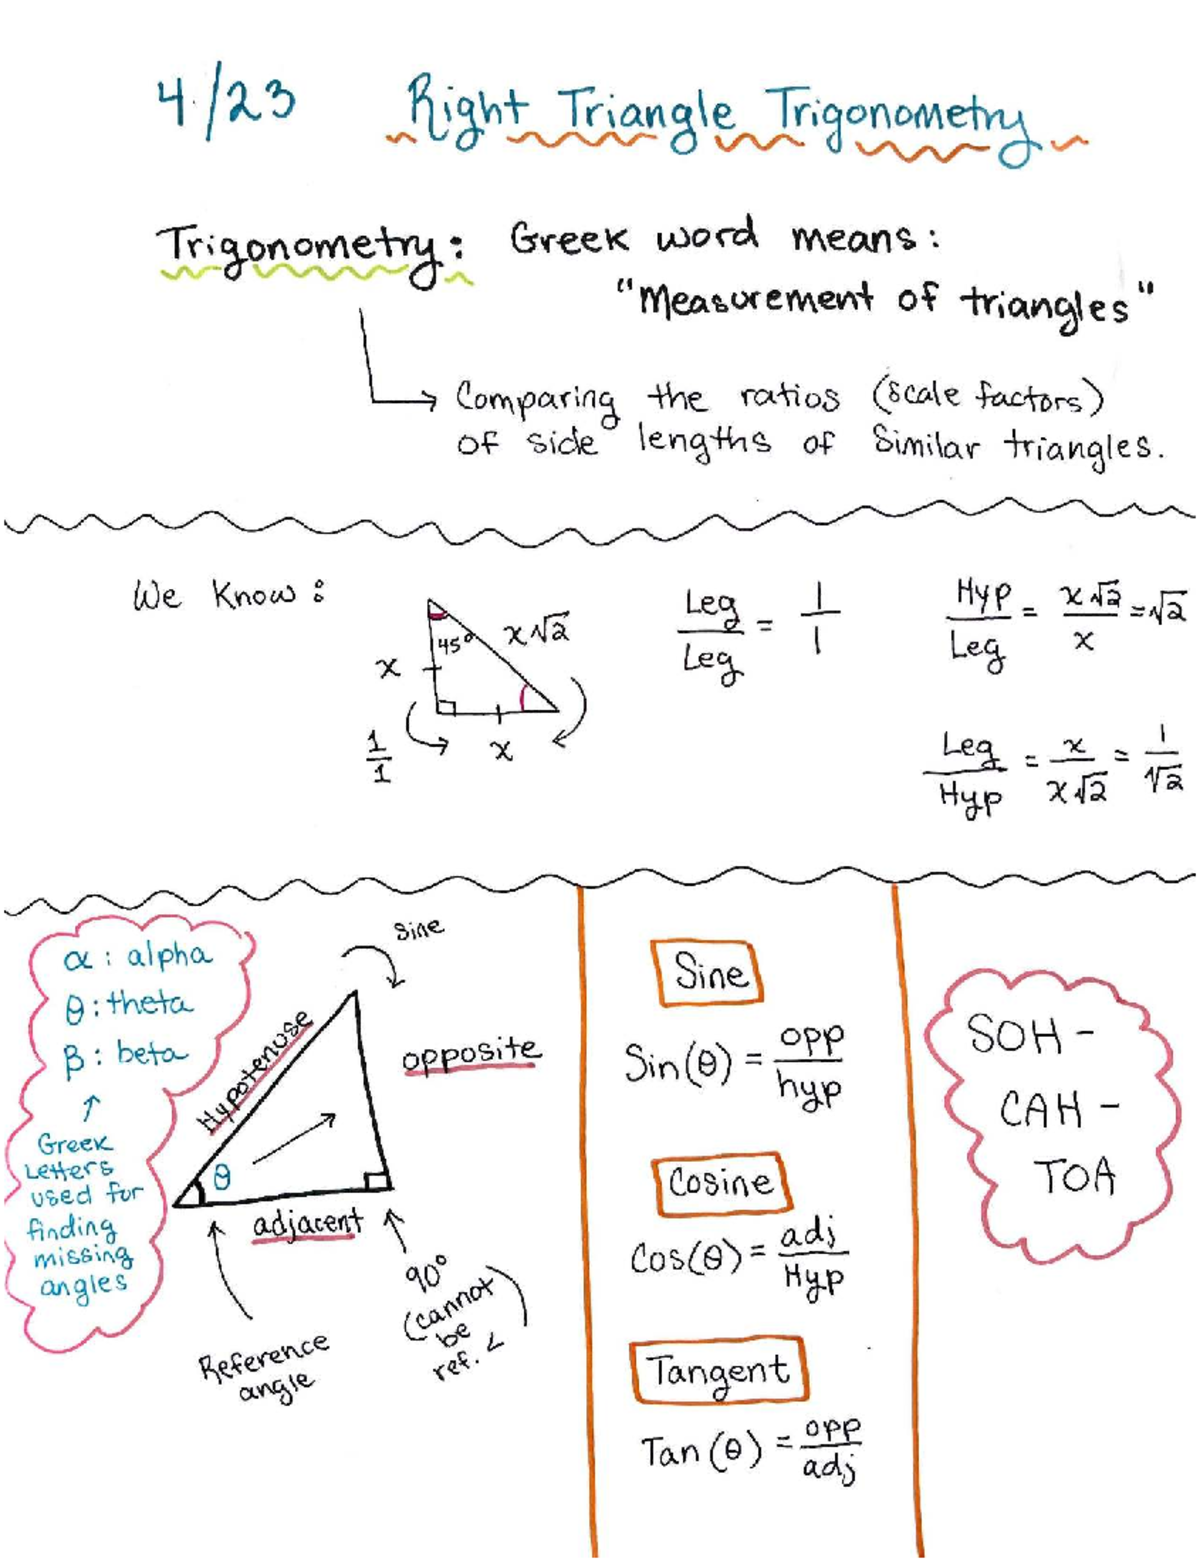 4/23 Right Triangle Trigonometry
Trigonometry: Greek word means:
"Measurement of triangles"
Comparing the ratios (scale factors)
of side lengths of Similar triangles.
We Know:
45°
x√2
x
x
1/1
Leg/Leg = 1/1
Hyp/Leg = x√2/x = √2
Leg/Hyp = x/x√2 = 1/√2
α: alpha
θ: theta
β: beta
Greek
Letters
used for
finding
missing
angles
Sine
Hypotenuse
opposite
θ
adjacent
Reference
angle
90°
(cannot
be
ref. <)
Sine
Sin(θ) = opp/hyp
Cosine
Cos(θ) = adj/Hyp
Tangent
Tan(θ) = opp/adj
SOH -
CAH -
TOA